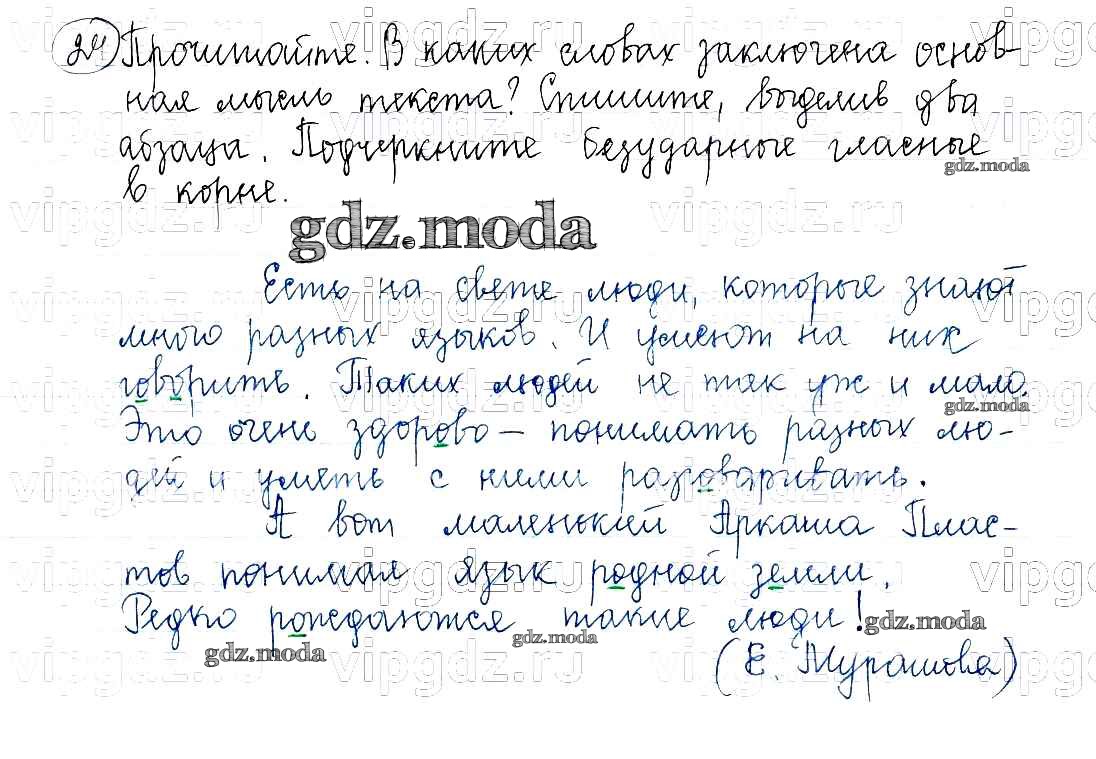 24 Прочитайте. В каких словах заключена основ-
ная мысль текста? Спишите, выделив два
абзаца. Подчеркните безударные гласные
в корне.
gdz.moda
Есть на свете люди, которые знают
много разных языков. И умеют на них
говорить. Таких людей не так уж и мало.
Это очень здорово – понимать разных лю-
дей и уметь с ними разговаривать.
А вот маленький Аркаша Плас-
тов понимал язык родной земли.
Редко рождаются такие люди!
(Е. Мурашова)